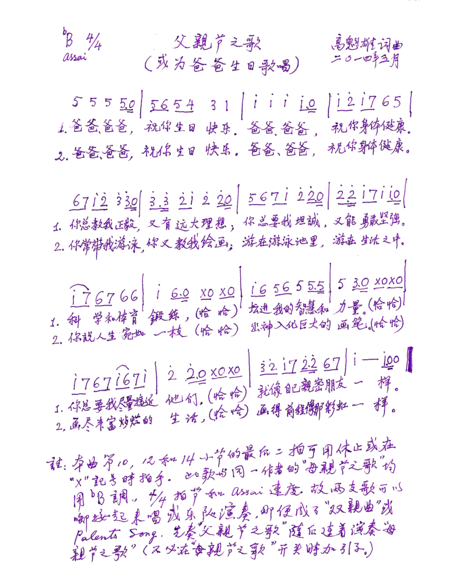 ᵇB 4/4 父親节之歌 高魁雄词曲
Assai (或为爸爸生日歌唱) 二〇一四年三月
5 5 5 5 5.0 | 5 6 5 4 3 1 | i i i i.0 | i 2 i 7 6 5 |
1. 爸爸、爸爸, 祝你生日 快乐. 爸爸、爸爸, 祝你身体健康.
2. 爸爸、爸爸, 祝你生日 快乐. 爸爸、爸爸, 祝你身体健康.
6 7 i 2 3 3 0 | 3.3 2 i 2 2 0 | 5 6 7 i 2 2 0 | 2 2 i 7 i i 0 |
1. 你总教我正直, 又有远大理想; 你总要我坦诚, 又能勇敢坚强.
2. 你常带我游泳, 你又教我绘画; 游在游泳池里, 游在生活之中.
i 7 6 7 6 6 | i 6.0 x0 x0 | i 6 5 6 5 5.5 | 5 3.0 x0x0 |
1. 科 学和体育 锻练, (恰恰) 促进我的智慧和 力量. (恰恰)
2. 你说人生 宛如 一枝 (恰恰) 出神入化巨大的 画笔. (恰恰)
i 7 6 7 i 6 7 i | 2 2.0 x0x0 | 3 2 i 7 2 2 6 7 | i — i00
1. 你总要我尽量接近 他们. (恰恰) 就像自己親密朋友 一 样.
2. 画尽丰富灿烂的 生活, (恰恰) 画得前程像那彩虹 一 样.
註: 本曲第10, 12和14小节的最后二拍可用休止或在
"X"记号时拍手. 此歌与同一作者的"母親节之歌"均
用ᵇB調, 4/4拍节和Assai速度. 故两支歌可以
啣接起来唱或乐队演奏, 即便成了"双親曲"或
Parents Song. 先奏"父親节之歌"随后连着演奏"母
親节之歌" (不必在"母親节之歌"开头时加引子.)